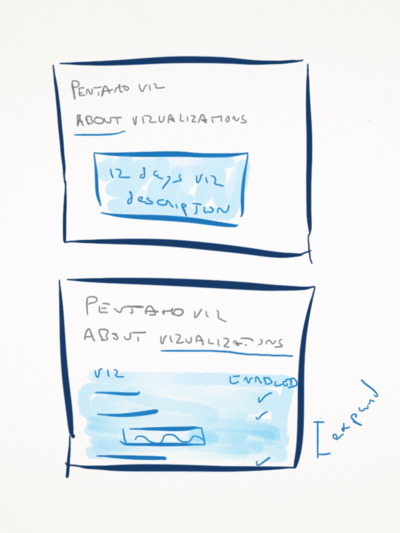 PENTAHO VIZ
ABOUT VIZUALIZATIONS
12 days VIZ
description
PENTAHO VIZ
ABOUT VIZUALIZATIONS
VIZ ENABLED
expand